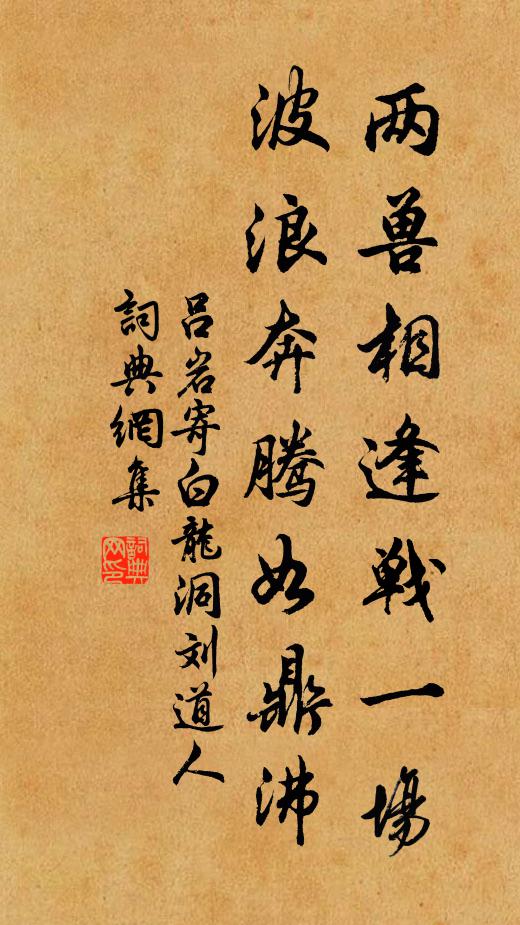 两兽相逢战一場
波浪奔腾如鼎沸
吕岩寄白龍洞刘道人
詞典網集
詞典网印